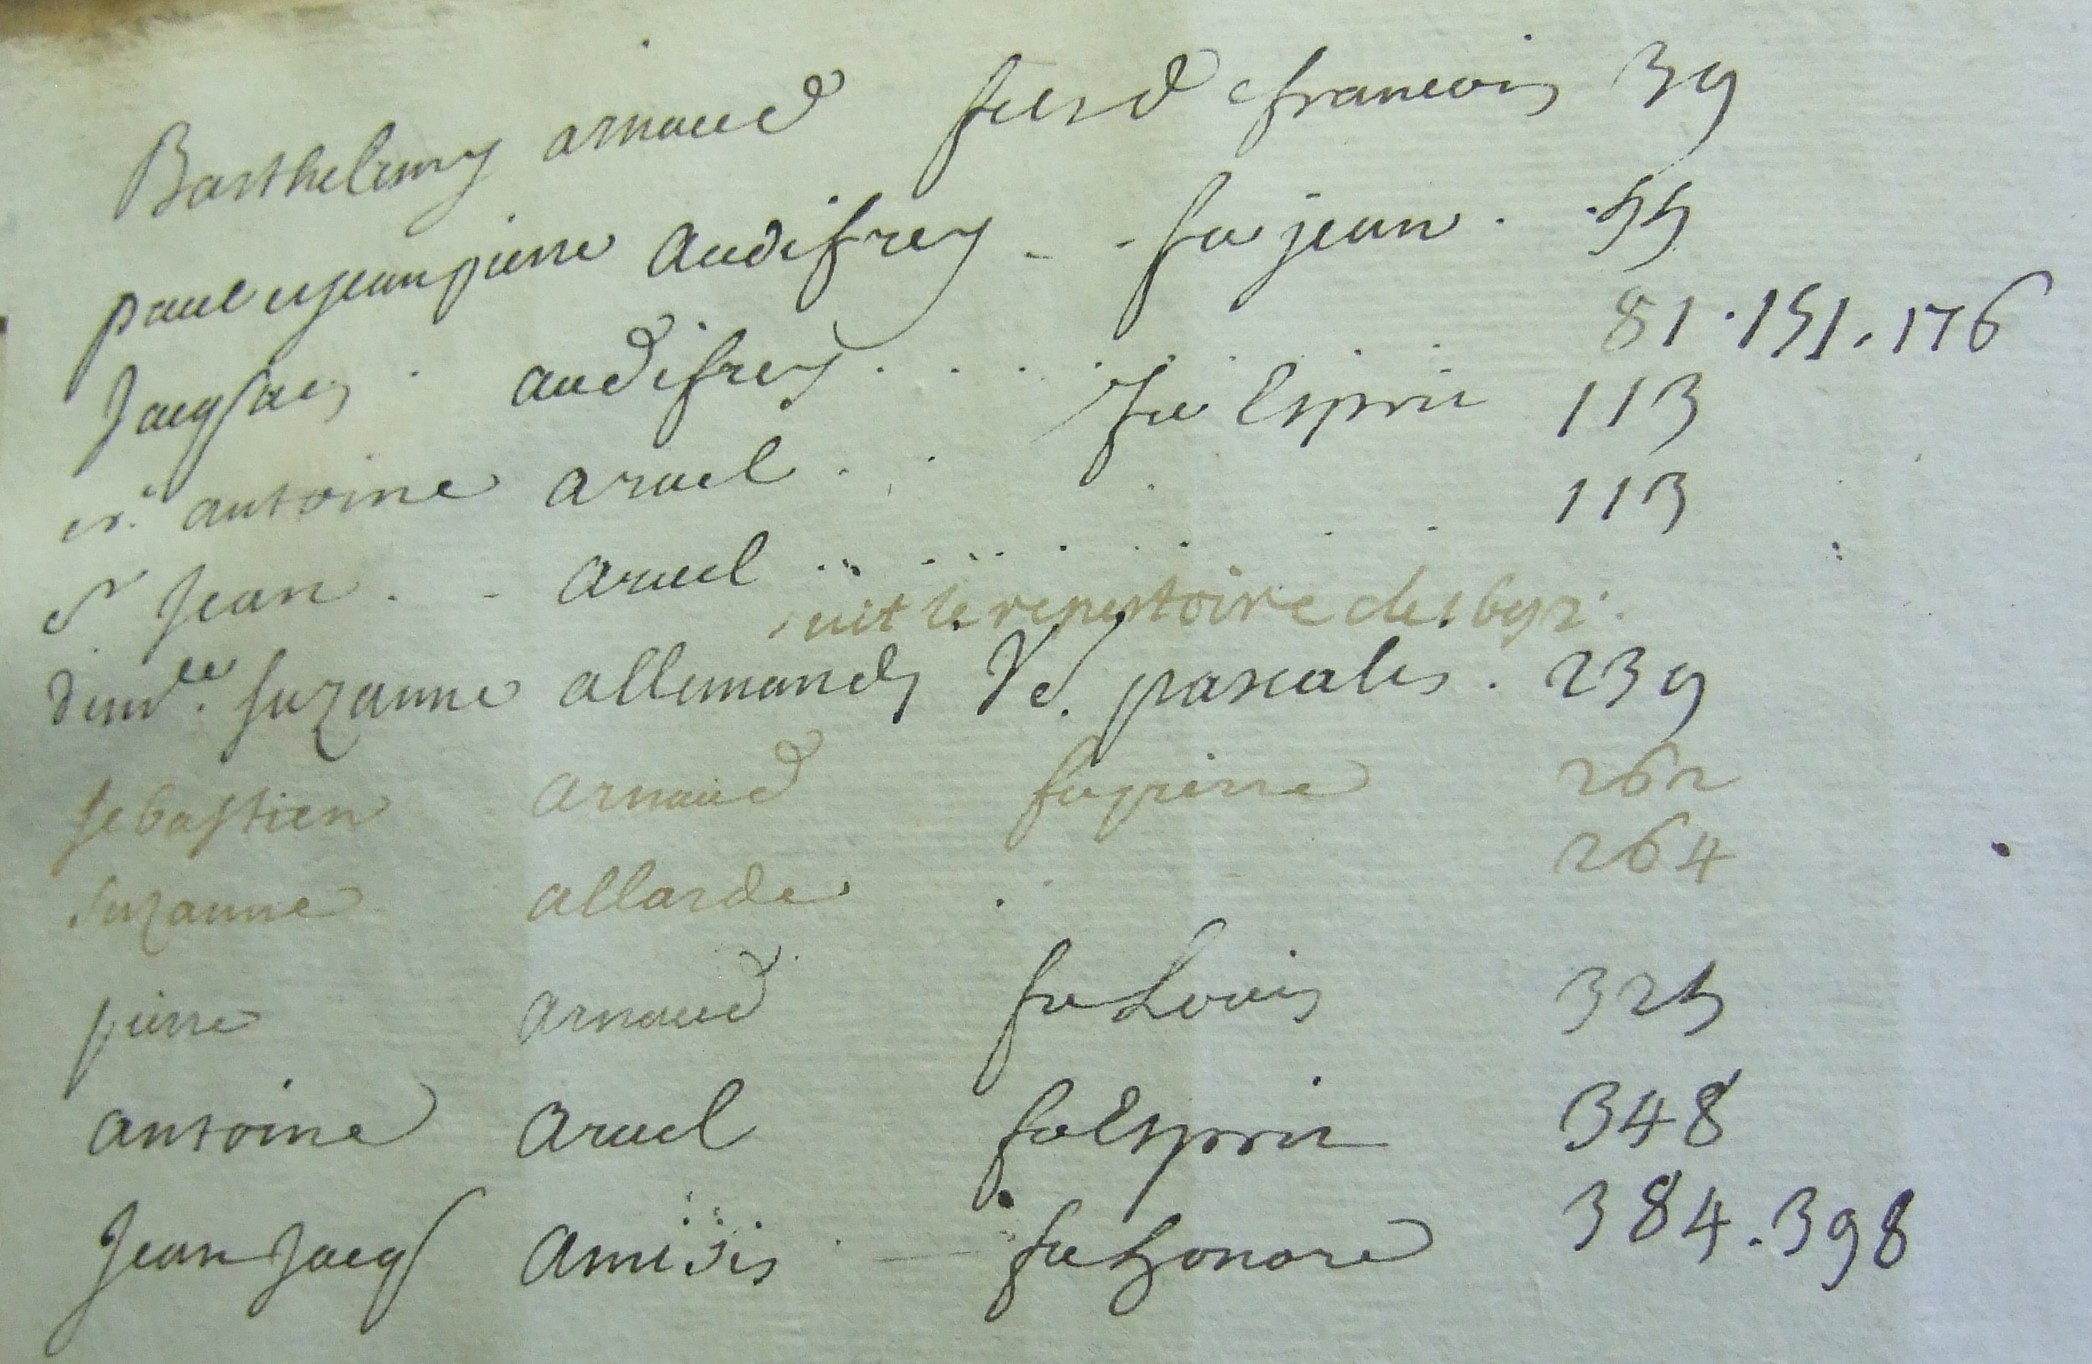 Barthelemy arnaud fils de francois 39
paul et jean pierre audifrey - - fu jean . . 55
Jacques . audifrey . . . . . . . 81 . 151 . 176
sr. antoine aruel . . fu Esprit 113
sr Jean . - aruel . . . . . . . . 113
suit le repertoire de
demlle. suzanne allemande Ve. pascalis . 239
sebastien arnaud fu pierre 262
suzanne allarde . . 264
pierre arnaud fu Louis 325
antoine aruel fu Esprit 348
Jean Jacqs fu honore 384 . 398